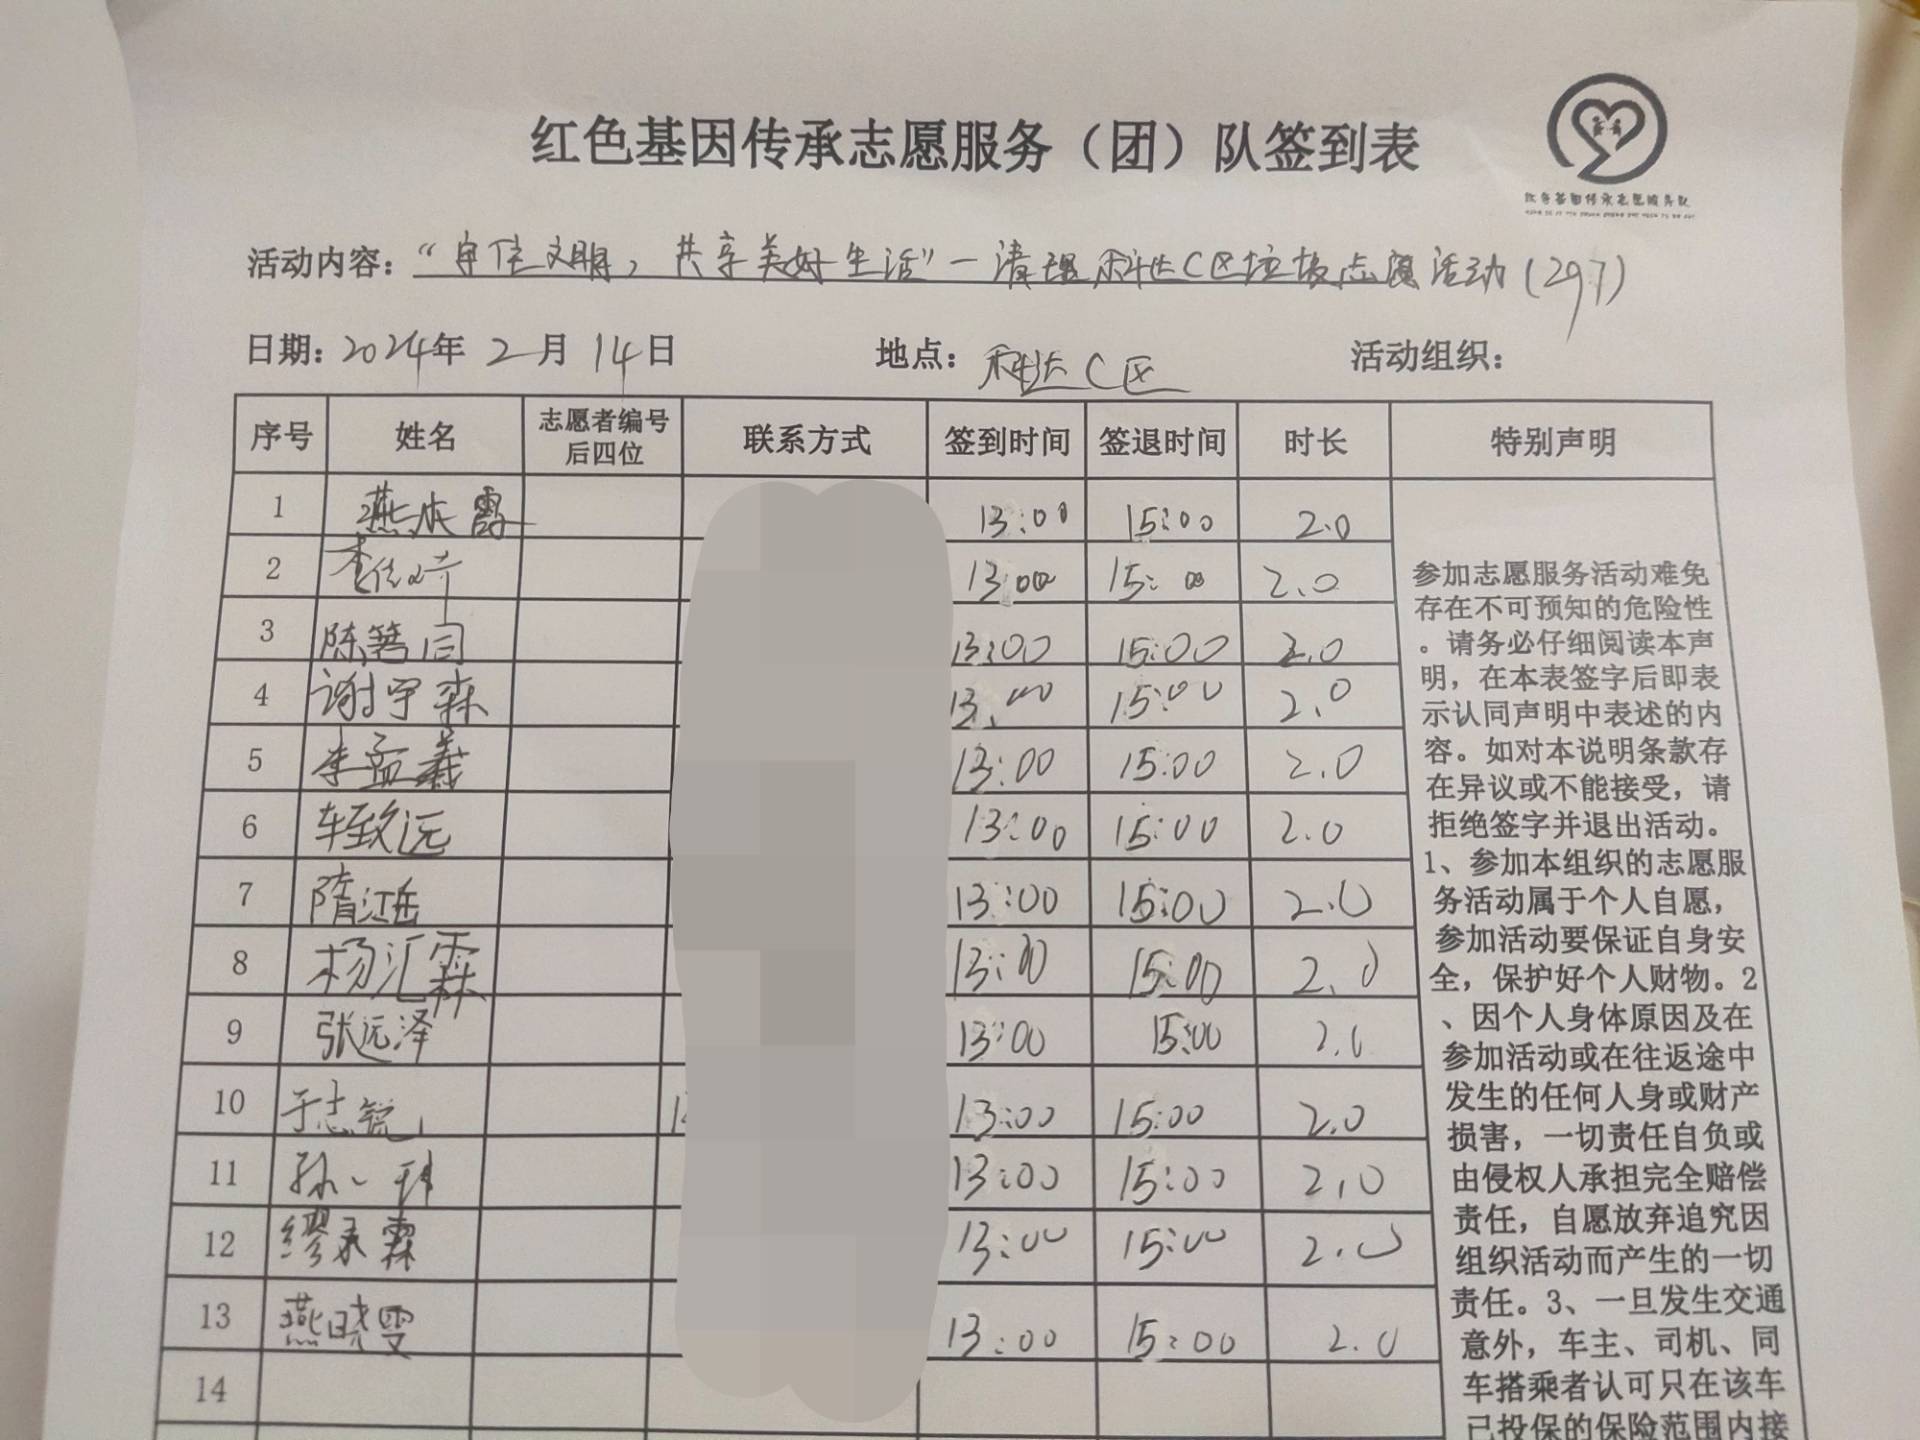 红色基因传承志愿服务（团）队签到表
红色基因传承志愿服务队
活动内容：“守信文明，共享美好生活”—清理科达C区垃圾志愿活动(297)
日期：2024年 2月 14日 地点：科达C区 活动组织：
序号 姓名 志愿者编号后四位 联系方式 签到时间 签退时间 时长 特别声明
1 13:00 15:00 2.0
2 13:00 15:00 2.0
3 13:00 15:00 2.0
4 谢宇森 13:00 15:00 2.0
5 李孟羲 13:00 15:00 2.0
6 车致远 13:00 15:00 2.0
7 隋江岳 13:00 15:00 2.0
8 杨汇霖 13:00 15:00 2.0
9 张远泽 13:00 15:00 2.0
10 于志锐 13:00 15:00 2.0
11 孙一 13:00 15:00 2.0
12 缪承霖 13:00 15:00 2.0
13 燕晓雯 13:00 15:00 2.0
14
参加志愿服务活动难免
存在不可预知的危险性
。请务必仔细阅读本声
明，在本表签字后即表
示认同声明中表述的内
容。如对本说明条款存
在异议或不能接受，请
拒绝签字并退出活动。
1、参加本组织的志愿服
务活动属于个人自愿，
参加活动要保证自身安
全，保护好个人财物。2
、因个人身体原因及在
参加活动或在往返途中
发生的任何人身或财产
损害，一切责任自负或
由侵权人承担完全赔偿
责任，自愿放弃追究因
组织活动而产生的一切
责任。3、一旦发生交通
意外，车主、司机、同
车搭乘者认可只在该车
已投保的保险范围内接